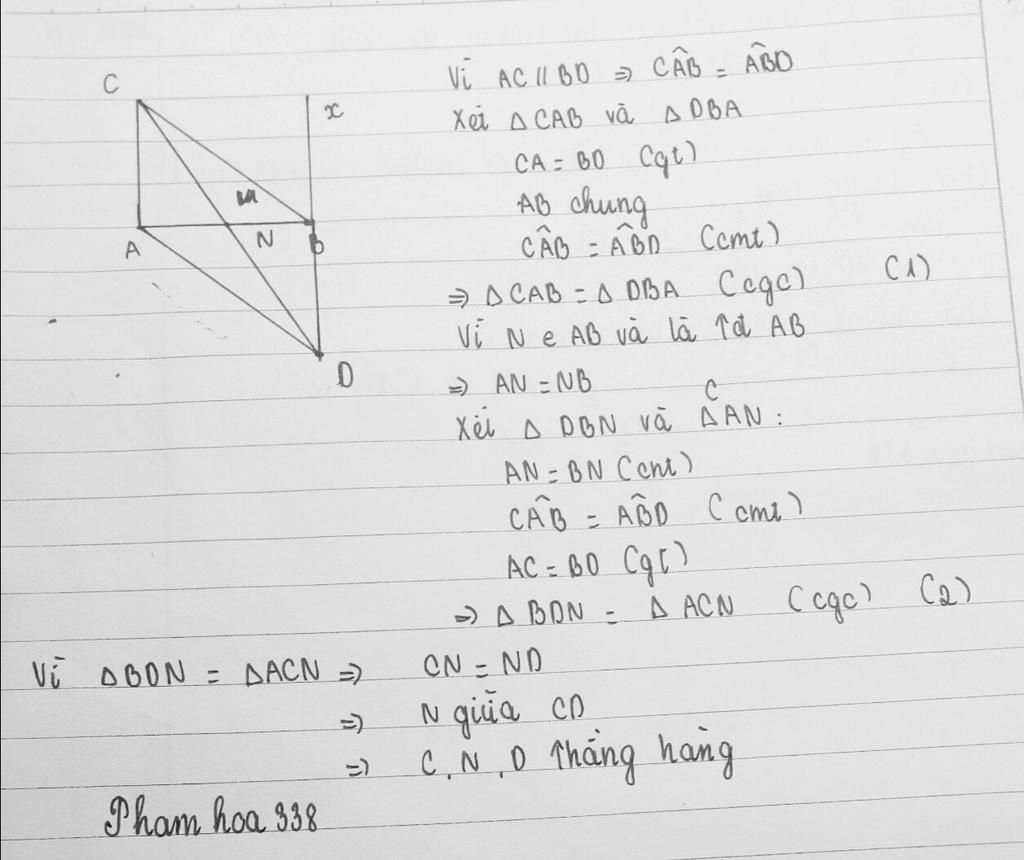 C
x
M
A
N
B
D
Vì AC // BD => CÂB = AB̂D
Xét Δ CAB và Δ DBA
CA = BD (gt)
AB chung
CÂB = AB̂D (cmt)
=> Δ CAB = Δ DBA (cgc) (1)
Vì N e AB và là tđ AB
=> AN = NB
Xét Δ DBN và Δ CAN :
AN = BN (cmt)
CÂB = AB̂D (cmt)
AC = BD (gt)
=> Δ BDN = Δ ACN (cgc) (2)
Vì ΔBDN = ΔACN => CN = ND
=> N giữa CD
=> C, N, D thẳng hàng
Pham hoa 338